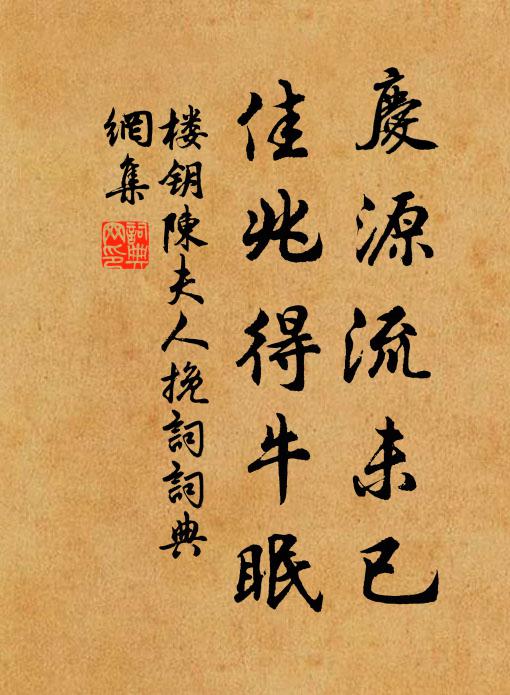 慶源流未已
佳兆得牛眠
楼钥陳夫人挽詞詞典
網集
詞典
网印